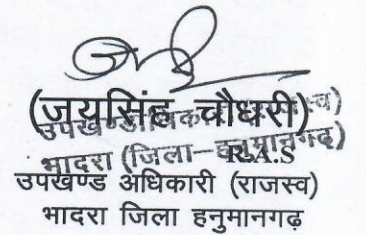 (जयसिंह चौधरी)
R.A.S
उपखण्ड अधिकारी (राजस्व)
भादरा (जिला-हनुमानगढ़)
उपखण्ड अधिकारी (राजस्व)
भादरा जिला हनुमानगढ़